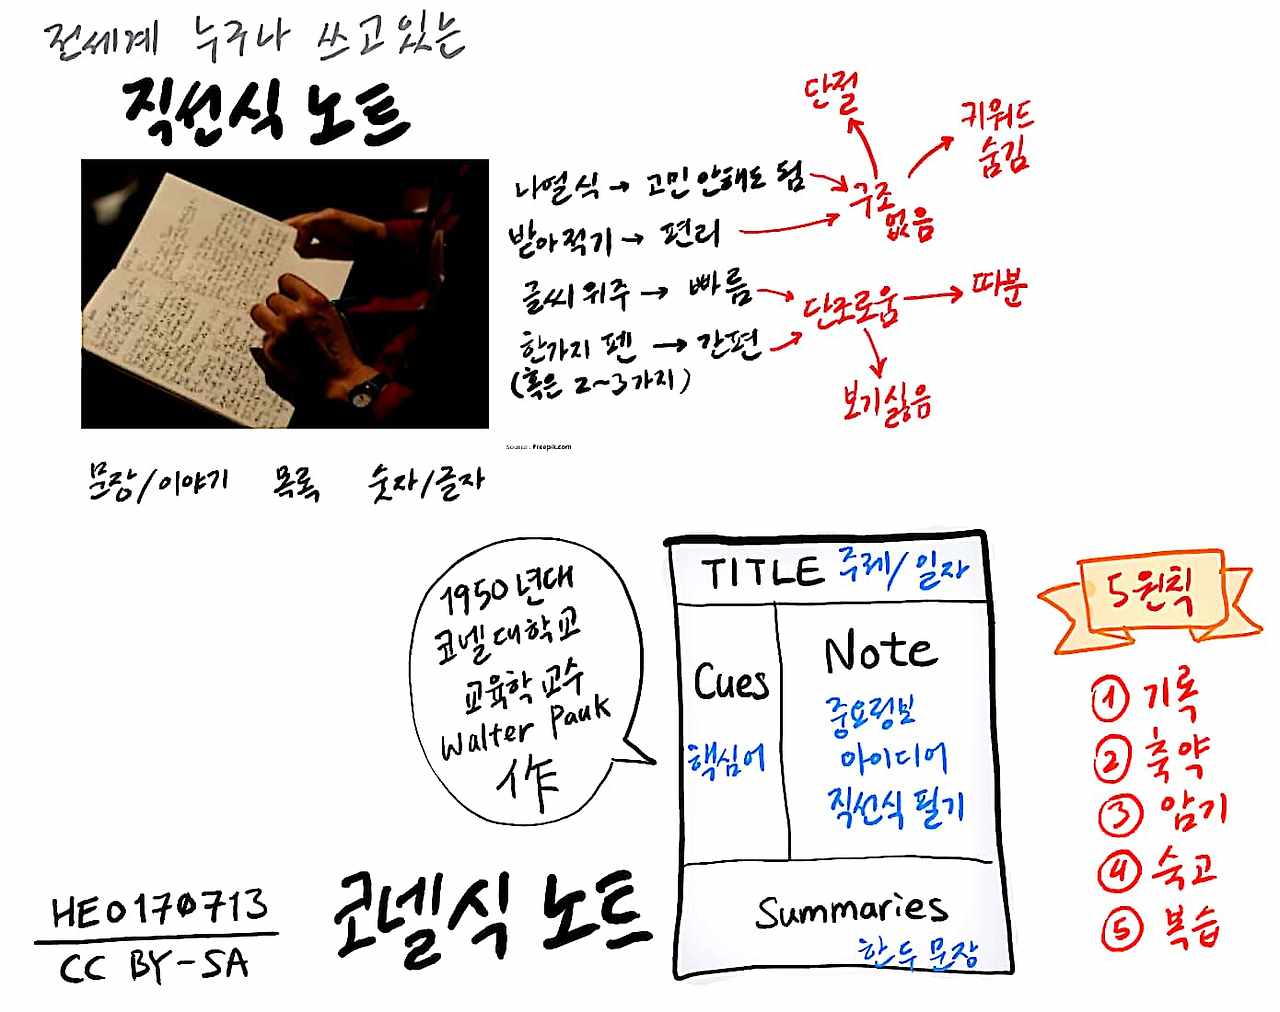 전세계 누구나 쓰고있는
직선식 노트
나열식 → 고민 안해도 됨
받아적기 → 편리
글씨 위주 → 빠름
한가지 펜 → 간편
(혹은 2~3가지)
구조
없음
단절
키워드
숨김
단조로움
따분
보기싫음
Source: Freepik.com
문장/이야기 목록 숫자/글자
1950년대
코넬대학교
교육학 교수
Walter Pauk
作
코넬식 노트
TITLE 주제/일자
Cues
핵심어
Note
중요정보
아이디어
직선식 필기
Summaries
한두 문장
5원칙
① 기록
② 축약
③ 암기
④ 숙고
⑤ 복습
HE0170713
CC BY-SA